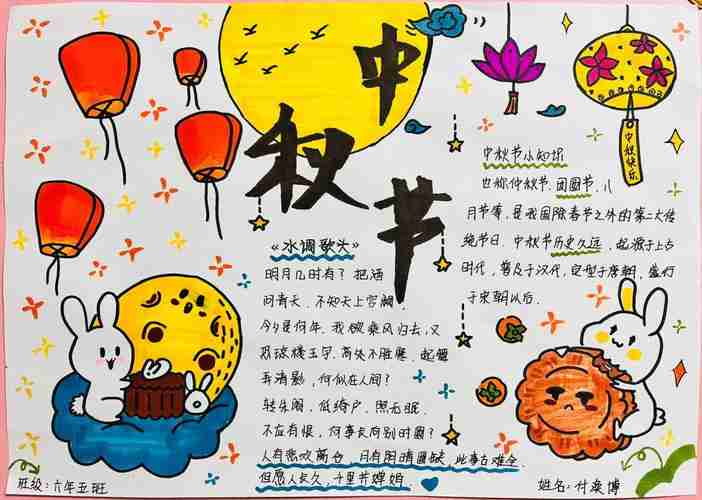 中秋节
中秋快乐
中秋节小知识
也称仲秋节、团圆节、八
月节等,是我国除春节之外的第二大传
统节日。中秋节历史久远,起源于上古
时代,普及于汉代,定型于唐朝,盛行
于宋朝以后.
《水调歌头》
明月几时有?把酒
问青天.不知天上宫阙,
今夕是何年.我欲乘风归去,又
恐琼楼玉宇.高处不胜寒.起舞
弄清影,何似在人间?
转朱阁,低绮户,照无眠.
不应有恨,何事长向别时圆?
人有悲欢离合,月有阴晴圆缺,此事古难全.
但愿人长久,千里共婵娟.
班级:六年五班
姓名:付奕博